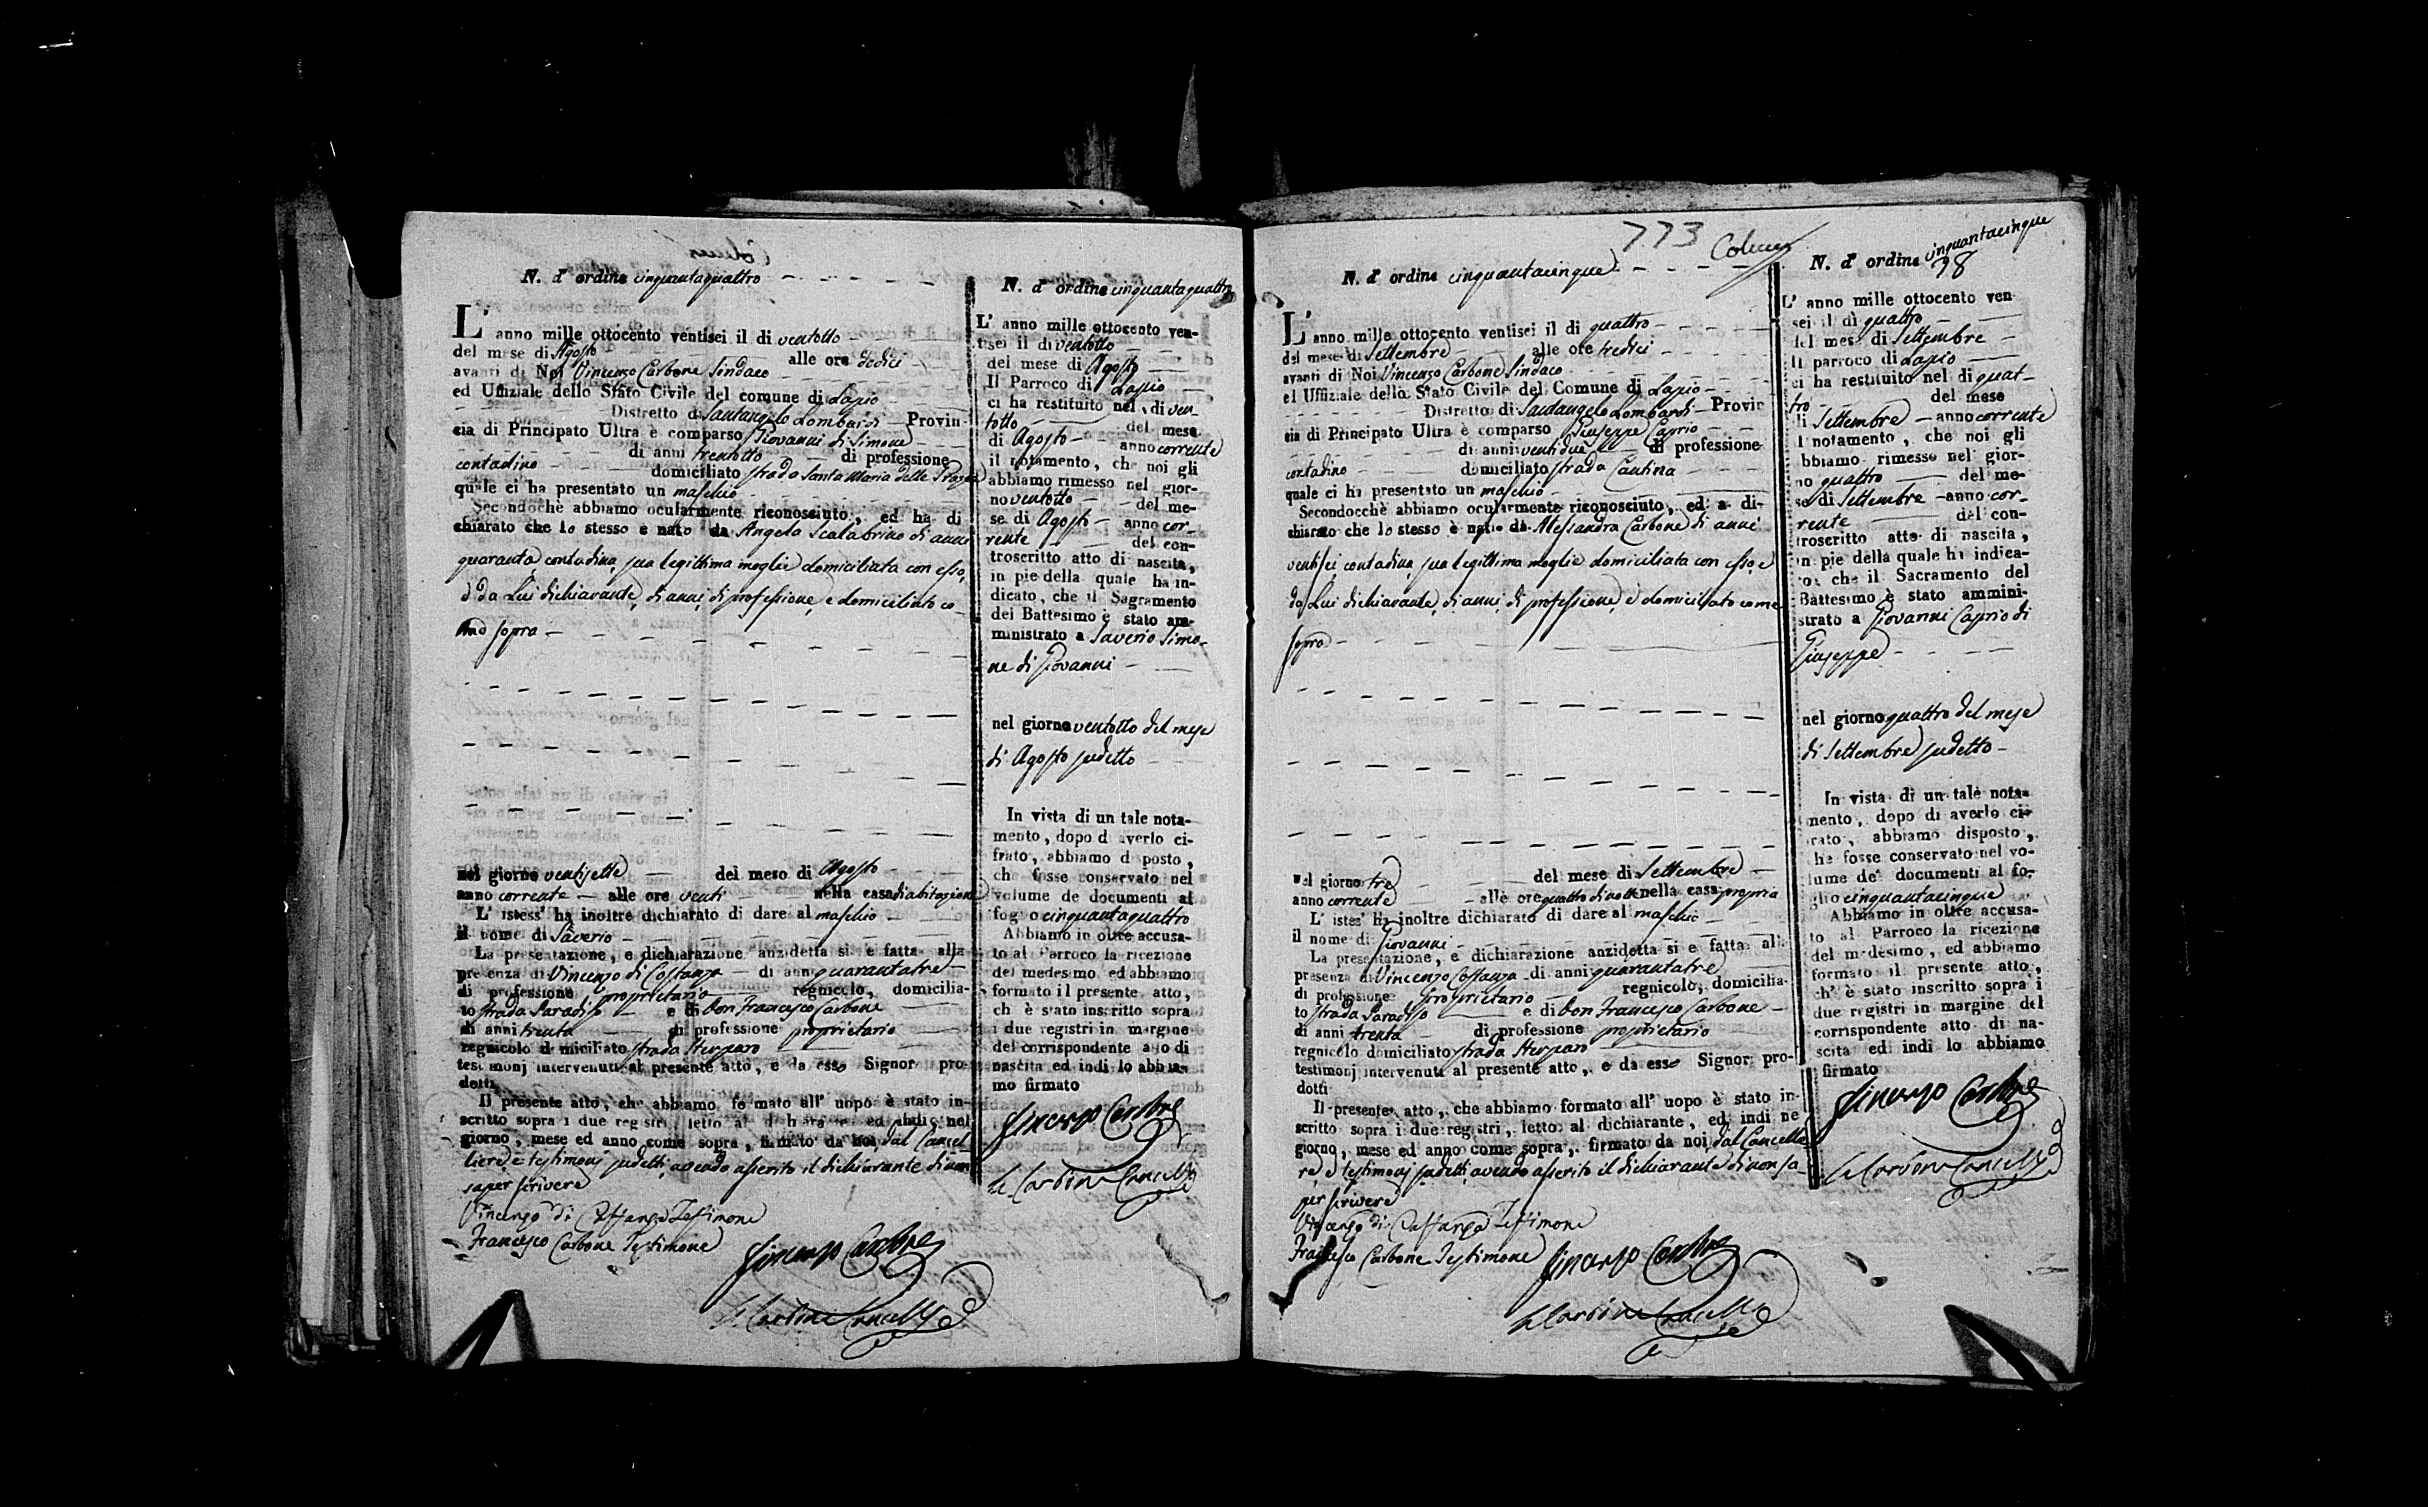 N. d' ordine cinquantaquattro
L' anno mille ottocento ventisei il di ventotto
del mese di Agosto alle ore dodici
avanti di Noi Vincenzo Carbone Sindaco
ed Uffiziale dello Stato Civile del comune di Lapio
Distretto di Santangelo Lombardi Provin-
cia di Principato Ultra è comparso Giovanni di Simone
di anni trentotto di professione
contadino domiciliato strada Santa Maria delle Grazie
quale ci ha presentato un maschio
Secondochè abbiamo ocularmente riconosciuto, ed ha di
chiarato che lo stesso è nato da Angela Scalabrino di anni
quaranta, contadina, sua legittima moglie domiciliata con esso,
e da Lui dichiarante, di anni, di professione, e domiciliato co-
me sopra
nel giorno ventisette del mese di Agosto
anno corrente alle ore venti nella casa di abitazione
L' istess' ha inoltre dichiarato di dare al maschio
il nome di Saverio
La presentazione, e dichiarazione anzidetta si è fatta alla
presenza di Vincenzo di Costanza di anni quarantatre
di professione proprietario regnicolo, domicilia-
to strada Paradiso e di Don Francesco Carbone
di anni trenta di professione proprietario
regnicolo domiciliato strada
testimonj intervenuti al presente atto, e da esso Signor pro-
dotti
Il presente atto, che abbiamo formato all' uopo è stato in-
scritto sopra i due registri, letto al dichiarante, ed indi nel
giorno, mese ed anno come sopra, firmato da noi, dal Cancel-
liere, e testimonj sudetti, avendo asserito il dichiarante di non
saper scrivere
Vincenzo di Costanza Testimone
Francesco Carbone Testimone Vincenzo Carbone
Carbone Cancell
N. d' ordine cinquantaquattro
L' anno mille ottocento ven-
tisei il di ventotto
del mese di Agosto
Il Parroco di Lapio
ci ha restituito nel di ven
totto del mese
di Agosto anno corrente
il notamento, che noi gli
abbiamo rimesso nel gior-
no ventotto del me-
se di Agosto anno cor-
rente del con-
troscritto atto di nascita,
in pie della quale ha in-
dicato, che il Sagramento
del Battesimo è stato am-
ministrato a Saverio Simo-
ne di Giovanni
nel giorno ventotto del mese
di Agosto sudetto
In vista di un tale nota-
mento, dopo d averlo ci-
frato, abbiamo d posto,
ch fosse conservato nel
volume de documenti al
foglio cinquantaquattro
Abbiamo in oltre accusa-
to al Parroco la ricezione
del medesimo ed abbiamo
formato il presente atto,
ch è stato inscritto sopra
i due registri in margine
del corrispondente atto di
nascita ed indi lo abbia-
mo firmato
Vincenzo Carbone
Carbone Cancell
773 Colucci
N. d' ordine cinquantacinque
L' anno mille ottocento ventisei il di quattro
del mese di Settembre alle ore tredici
avanti di Noi Vincenzo Carbone Sindaco
ed Uffiziale dello Stato Civile del Comune di Lapio
Distretto di Santangelo Lombardi Provin
cia di Principato Ultra è comparso Giuseppe Caprio
di anni ventidue di professione
contadino domiciliato strada Cantina
quale ci ha presentato un maschio
Secondocchè abbiamo ocularmente riconosciuto, ed a di-
chiarato che lo stesso è nato da Alessandra Carbone di anni
ventisei contadina, sua legittima moglie domiciliata con esso, e
da Lui dichiarante, di anni, di professione, e domiciliato come
sopra
nel giorno tre del mese di Settembre
anno corrente alle ore quattro di notte nella casa propria
L' istes' ha inoltre dichiarato di dare al maschio
il nome di Giovanni
La presentazione, e dichiarazione anzidetta si e fatta alla
presenza di Vincenzo Costanza di anni quarantatre
di professione proprietario regnicolo, domicilia-
to strada Paradiso e di Don Francesco Carbone
di anni trenta di professione proprietario
regnicolo domiciliato strada
testimonj intervenuti al presente atto, e da esso Signor pro-
dotti
Il presente atto, che abbiamo formato all' uopo è stato in-
scritto sopra i due registri, letto al dichiarante, ed indi ne
giorno, mese ed anno come sopra, firmato da noi, dal Cancellie
re, e testimonj sudetti, avendo asserito il dichiarante di non sa-
per scrivere
Vincenzo di Costanza Testimone
Francesco Carbone Testimone Vincenzo Carbone
Carbone Cancell
N. d' ordine cinquantacinque
38
L' anno mille ottocento ven-
sei il dì quattro
del mese di Settembre
Il parroco di Lapio
ci ha restituito nel di quat-
tro del mese
di Settembre anno corrente
l notamento, che noi gli
abbiamo rimesso nel gior-
no quattro del me-
se di Settembre anno cor-
rente del con-
troscritto atto di nascita,
in pie della quale ha indica-
to, che il Sacramento del
Battesimo è stato ammini-
strato a Giovanni Caprio di
Giuseppe
nel giorno quattro del mese
di Settembre sudetto
In vista di un tale nota-
mento, dopo di averlo ci-
frato, abbiamo disposto,
che fosse conservato nel vo-
lume de' documenti al fo-
glio cinquantacinque
Abbiamo in oltre accusa-
to al Parroco la ricezione
del medesimo, ed abbiamo
formato il presente atto,
ch' è stato inscritto sopra i
due registri in margine del
corrispondente atto di na-
scita ed indi lo abbiamo
firmato
Vincenzo Carbone
Carbone Cancell